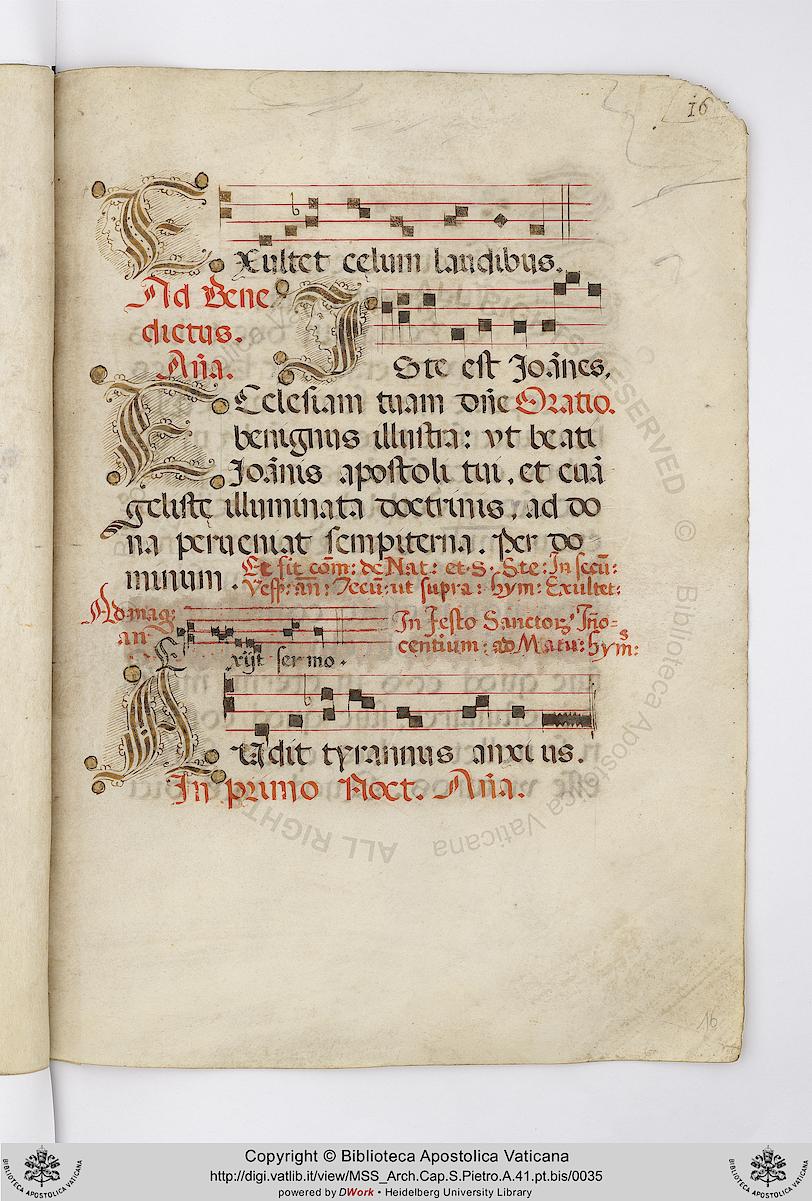 16
Exultet celum laudibus.
Ad Bene
dictus.
Aña.
ISte est Joānes.
ECclesiam tuam dñe Oratio.
benignus illustra: vt beati
Joānis apostoli tui, et euā
geliste illuminata doctrinis, ad do
na perueniat sempiterna. Per do
minum.
Et fit cōm: de Nat: et S. Ste: In secū:
Vesp: añ: Iecū: ut supra: hym: Exultet:
Ad mag:
an
Exijt sermo.
In festo Sanctorꝝ Iño=
centium: ad Matu: hym:
AUdit tyrannus anxius.
In primo Noct. Aña.
16
ALL RIGHTS RESERVED © Biblioteca Apostolica Vaticana
Copyright © Biblioteca Apostolica Vaticana
http://digi.vatlib.it/view/MSS_Arch.Cap.S.Pietro.A.41.pt.bis/0035
powered by DWork • Heidelberg University Library
BIBLIOTECA APOSTOLICA VATICANA
BIBLIOTECA APOSTOLICA VATICANA